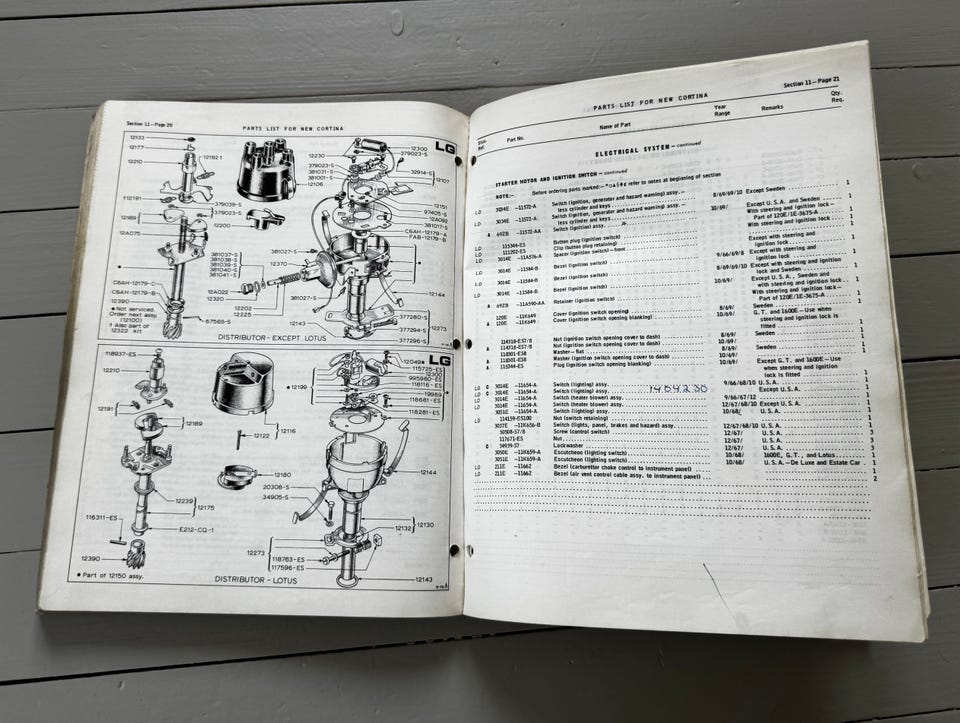 Section 11 — Page 20
PARTS LIST FOR NEW CORTINA
LG
12133
12177
12210
12192
111291
379039-S
12189
379023-S
12200
12A075
12106
12230
12300
379023-S
379023-S
381031-S
381001-S
32914-S
12107
12151
97405-S
12A082
381017-S
C6AH-12179-A
FAB-12179-B
381027-S
12370
381037-S
381038-S
381039-S
381040-S
381041-S
12A022
12320
12202
12225
381027-S
12144
C6AH-12179-C
C6AH-12179-B
12390
* Not serviced.
Order next assy.
(12100)
† Also part of
12322 kit
67565-S
12143
377280-S
12273
377294-S
377296-S
DISTRIBUTOR - EXCEPT LOTUS
LG
118937-ES
12210
12191
12189
12116
12122
12180
12239
12175
E212-CQ-1
116311-ES
12390
* Part of 12150 assy.
20308-S
34905-S
12049
115725-ES
12300
995960-ES
118116-ES
* 12199
19969
118681-ES
118281-ES
12144
12130
12132
12273
118763-ES
117596-ES
12143
DISTRIBUTOR - LOTUS
Section 11 — Page 21
PARTS LIST FOR NEW CORTINA
Illus. Ref. Part No. Name of Part Year Range Remarks Qty. Req.
ELECTRICAL SYSTEM — continued
STARTER MOTOR AND IGNITION SWITCH — continued
NOTE:— Before ordering parts marked refer to notes at beginning of section
LD 3034E -11572-A Switch (ignition, generator and hazard warning) assy. less cylinder and keys 8/69/69/10 Except Sweden 1
LD 3034E -11572-A Switch (ignition, generator and hazard warning) assy. less cylinder and keys 10/69/ Except U.S.A. and Sweden 1
A 69ZB -11572-AA Switch (ignition) assy. With steering and ignition lock— Part of 120E/1E-3675-A 1
LD 115344-ES Button plug (ignition switch) With steering and ignition lock
LD 113202-ES Clip (button plug retaining)
LD 3014E -11A576-A Spacer (ignition switch)—front Except with steering and ignition lock
LD 3014E -11584-B Bezel (ignition switch) 9/66/69/8 Except with steering and ignition lock
LD 3014E -11584-B Bezel (ignition switch) 8/69/69/10 Except with steering and ignition lock and Sweden 1
LD 3014E -11584-B Bezel (ignition switch) 10/69/ Except U.S.A., Sweden and with steering and ignition lock 1
A 69ZB -11A590-AA Retainer (ignition switch) With steering and ignition lock— Part of 120E/1E-3675-A 1
120E -11K649 Cover (ignition switch opening) 8/69/ Sweden 1
A 120E -11K649 Cover (ignition switch opening blanking) 10/69/ G.T. and 1600E—Use when steering and ignition lock is fitted 1
114318-ES7/8 Nut (ignition switch opening cover to dash) 8/69/ Sweden 1
A 114318-ES7/8 Nut (ignition switch opening cover to dash) 10/69/
118301-ES8 Washer—flat 8/69/ Sweden 1
A 118301-ES8 Washer (ignition switch opening cover to dash) 10/69/
A 115344-ES Plug (ignition switch opening blanking) 10/69/ Except G.T. and 1600E—Use when steering and ignition lock is fitted 1
LD C 3014E -11654-A Switch (lighting) assy. 9/66/68/10 U.S.A. 1
LD C 3014E -11654-A Switch (lighting) assy. Except U.S.A. 1
LD 3014E -11654-A Switch (heater blower) assy. 9/66/67/12 1
LD 3014E -11654-A Switch (heater blower) assy. 12/67/68/10 Except U.S.A. 1
3051E -11654-A Switch (lighting) assy. 10/68/ U.S.A. 1
LD 114159-ES100 Nut (switch retaining) 1
3037E -11K656-B Switch (lights, panel, brakes and hazard) assy. 12/67/68/10 U.S.A. 1
50508-S7/8 Screw (control switch) 12/67/ U.S.A. 3
117671-ES Nut 12/67/ U.S.A. 3
C 34939-S7 Lockwasher 12/67/ U.S.A. 3
3050E -11K659-A Escutcheon (lighting switch) 10/68/ 1600E, G.T., and Lotus 1
3051E -11K659-A Escutcheon (lighting switch) 10/68/ U.S.A.—De Luxe and Estate Car 1
LD 211E -11662 Bezel (carburettor choke control to instrument panel) 1
LD 211E -11662 Bezel (air vent control cable assy. to instrument panel) 2